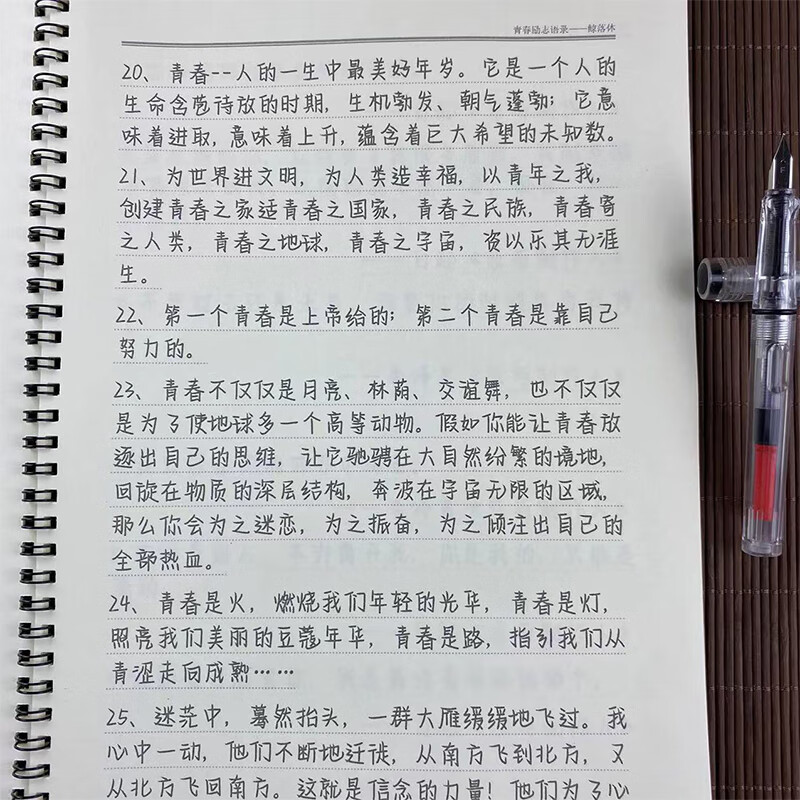 青春励志语录——鲸落体
20、青春--人的一生中最美好年岁。它是一个人的
生命含苞待放的时期，生机勃发、朝气蓬勃；它意
味着进取，意味着上升，蕴含着巨大希望的未知数。
21、为世界进文明，为人类造幸福，以青年之我，
创建青春之家适青春之国家，青春之民族，青春寄
之人类，青春之地球，青春之宇宙，资以乐其无涯
生。
22、第一个青春是上帝给的；第二个青春是靠自己
努力的。
23、青春不仅仅是月亮、林荫、交谊舞，也不仅仅
是为了使地球多一个高等动物。假如你能让青春放
逐出自己的思维，让它驰骋在大自然纷繁的境地，
回旋在物质的深层结构，奔波在宇宙无限的区域，
那么你会为之迷恋，为之振奋，为之倾注出自己的
全部热血。
24、青春是火，燃烧我们年轻的光华，青春是灯，
照亮我们美丽的豆蔻年华，青春是路，指引我们从
青涩走向成熟……
25、迷茫中，蓦然抬头，一群大雁缓缓地飞过。我
心中一动，他们不断地迁徙，从南方飞到北方，又
从北方飞回南方。这就是信念的力量！他们为了心